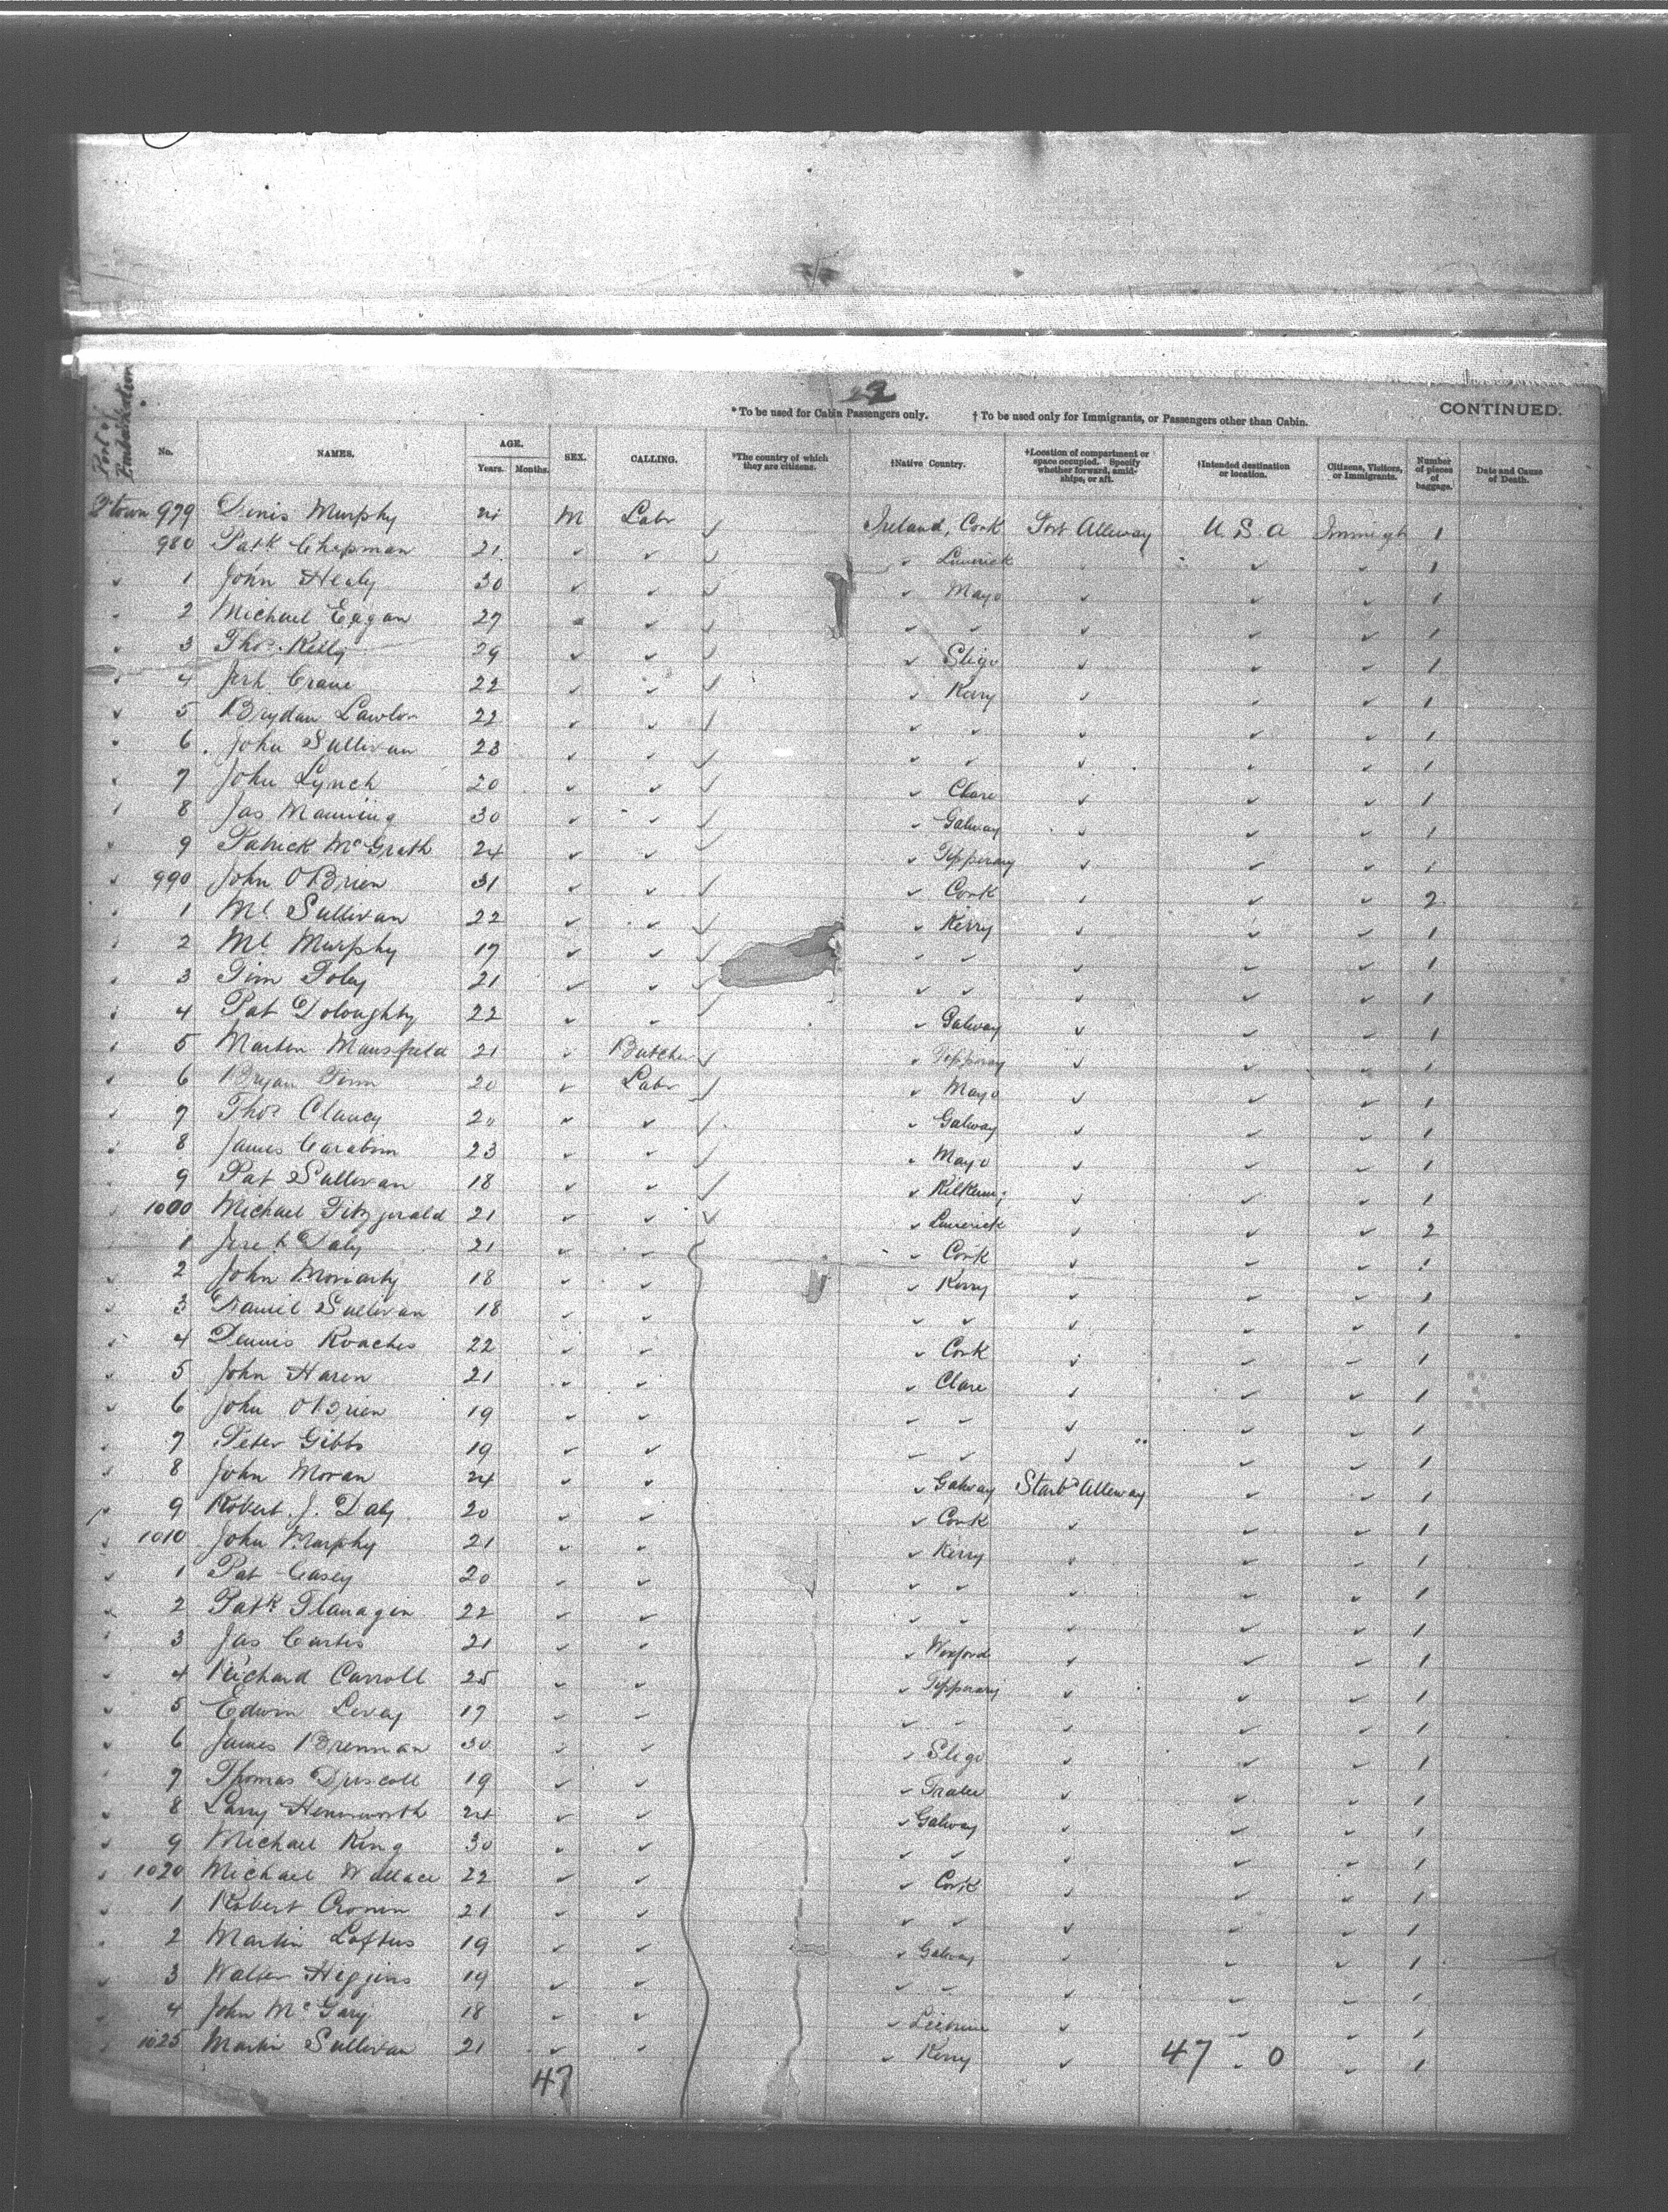 22
* To be used for Cabin Passengers only. † To be used only for Immigrants, or Passengers other than Cabin. CONTINUED.
Port of Embarkation No. NAMES. AGE. Years. Months. SEX. CALLING. *The country of which they are citizens. †Native Country. †Location of compartment or space occupied. Specify whether forward, amidships, or aft. †Intended destination or location. Citizens, Visitors, or Immigrants. Number of pieces of baggage. Date and Cause of Death.
Q'town 979 Denis Murphy M Labr Ireland, Cork Port Alleway U.S.A 1
980 Patk Chapman 21 ✓ ✓ ✓ Limerick ✓ ✓ 1
✓ 1 John Healy 30 ✓ ✓ ✓ Mayo ✓ ✓ ✓ 1
2 Michael Eagan 27 ✓ ✓ ✓ ✓ ✓ ✓ 1
✓ 3 Thos. Kelly 29 ✓ ✓ ✓ Sligo ✓ ✓ ✓ 1
4 Jerh Crane 22 ✓ ✓ ✓ Kerry ✓ ✓ ✓ 1
✓ 5 Brydan Lawlor 22 ✓ ✓ ✓ ✓ ✓ ✓ ✓ 1
6 John Sullivan 23 ✓ ✓ ✓ ✓ ✓ ✓ ✓ 1
7 John Lynch 20 ✓ ✓ ✓ Clare ✓ ✓ ✓ 1
8 Jas Manning 30 ✓ ✓ ✓ Galway ✓ ✓ ✓ 1
9 Patrick McGrath 24 ✓ ✓ ✓ Tipperary ✓ ✓ ✓ 1
990 John OBrien 31 ✓ ✓ ✓ Cork ✓ ✓ ✓ 2
1 Ml Sullivan 22 ✓ ✓ ✓ Kerry ✓ ✓ ✓ 1
2 Ml Murphy 17 ✓ ✓ ✓ ✓ ✓ ✓ ✓ 1
3 Tim Foley 21 ✓ ✓ ✓ ✓ ✓ ✓ ✓ 1
4 Pat Doloughty 22 ✓ ✓ ✓ Galway ✓ ✓ ✓ 1
5 Marten Mansfield 21 ✓ Butcher ✓ Tipperary ✓ ✓ ✓ 1
6 Bryan 20 ✓ Labr ✓ Mayo ✓ ✓ ✓ 1
7 Thos Clancy 20 ✓ ✓ ✓ Galway ✓ ✓ ✓ 1
8 James 23 ✓ ✓ ✓ Mayo ✓ ✓ ✓ 1
9 Pat Sullivan 18 ✓ ✓ ✓ Kilkenny ✓ ✓ ✓ 1
1000 Michael Fitzgerald 21 ✓ ✓ ✓ Limerick ✓ ✓ ✓ 2
1 Jereh Daly 21 ✓ ✓ ✓ Cork ✓ ✓ ✓ 1
2 John Moriarty 18 ✓ ✓ ✓ Kerry ✓ ✓ ✓ 1
3 Daniel Sullivan 18 ✓ ✓ ✓ ✓ ✓ ✓ ✓ 1
4 Dennis Roaches 22 ✓ ✓ ✓ Cork ✓ ✓ ✓ 1
5 John Haren 21 ✓ ✓ ✓ Clare ✓ ✓ ✓ 1
6 John OBrien 19 ✓ ✓ ✓ ✓ ✓ ✓ ✓ 1
7 Peter Gibbs 19 ✓ ✓ ✓ ✓ ✓ ✓ ✓ 1
8 John Moran 24 ✓ ✓ ✓ Galway Starbd Alleway ✓ ✓ 1
9 Robert J. Daly 20 ✓ ✓ ✓ Cork ✓ ✓ ✓ 1
1010 John Murphy 21 ✓ ✓ ✓ Kerry ✓ ✓ ✓ 1
1 Pat Casey 20 ✓ ✓ ✓ ✓ ✓ ✓ ✓ 1
2 Patk Flanagin 22 ✓ ✓ ✓ ✓ ✓ ✓ ✓ 1
3 Jas 21 ✓ ✓ ✓ Wexford ✓ ✓ ✓ 1
4 Richard Carroll 25 ✓ ✓ ✓ Tipperary ✓ ✓ ✓ 1
5 Edwin 17 ✓ ✓ ✓ ✓ ✓ ✓ ✓ 1
6 James Brennan 30 ✓ ✓ ✓ Sligo ✓ ✓ ✓ 1
7 Thomas Driscoll 19 ✓ ✓ ✓ Tralee ✓ ✓ ✓ 1
8 Larry ✓ ✓ ✓ Galway ✓ ✓ ✓ 1
9 Michael King 30 ✓ ✓ ✓ ✓ ✓ ✓ ✓ 1
1020 Michael Wallace 22 ✓ ✓ ✓ Cork ✓ ✓ ✓ 1
1 Robert Cronin 21 ✓ ✓ ✓ ✓ ✓ ✓ ✓ 1
2 Martin Loftus 19 ✓ ✓ ✓ Galway ✓ ✓ ✓ 1
3 Walter Higgins 19 ✓ ✓ ✓ ✓ ✓ ✓ ✓ 1
4 John McGary 18 ✓ ✓ ✓ Leitrim ✓ ✓ ✓ 1
1025 Martin Sullivan 21 ✓ ✓ ✓ Kerry ✓ ✓ ✓ 1
47 47 - 0